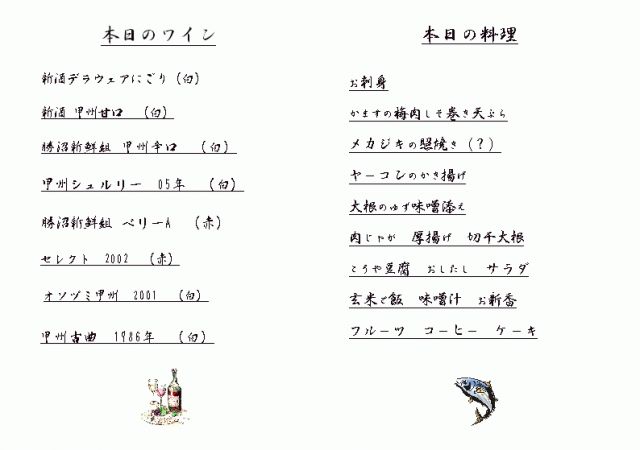 本日のワイン
新酒デラウェアにごり（白）
新酒 甲州甘口 （白）
勝沼新鮮組 甲州辛口 （白）
甲州シュルリー 05年 （白）
勝沼新鮮組 ベリーA （赤）
セレクト 2002 （赤）
オソヅミ甲州 2001 （白）
甲州古曲 1986年 （白）
本日の料理
お刺身
かますの梅肉しそ巻き天ぷら
メカジキの照焼き（？）
ヤーコンのかき揚げ
大根のゆず味噌添え
肉じゃが 厚揚げ 切干大根
こうや豆腐 おしたし サラダ
玄米で飯 味噌汁 お新香
フルーツ コーヒー ケーキ